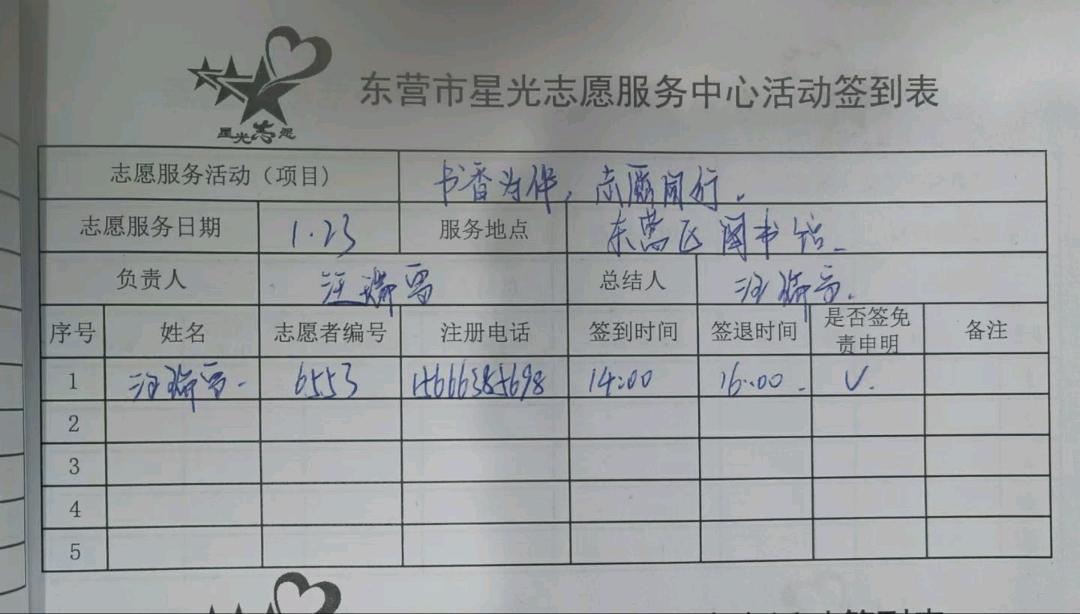 星光志愿
东营市星光志愿服务中心活动签到表
志愿服务活动（项目） 书香为伴，志愿同行.
志愿服务日期 1.23 服务地点 东营区图书馆
负责人 汪瑞雪 总结人 汪瑞雪.
序号 姓名 志愿者编号 注册电话 签到时间 签退时间 是否签免责申明 备注
1 汪瑞雪. 6553 15666385698 14:00 16:00. √.
2
3
4
5